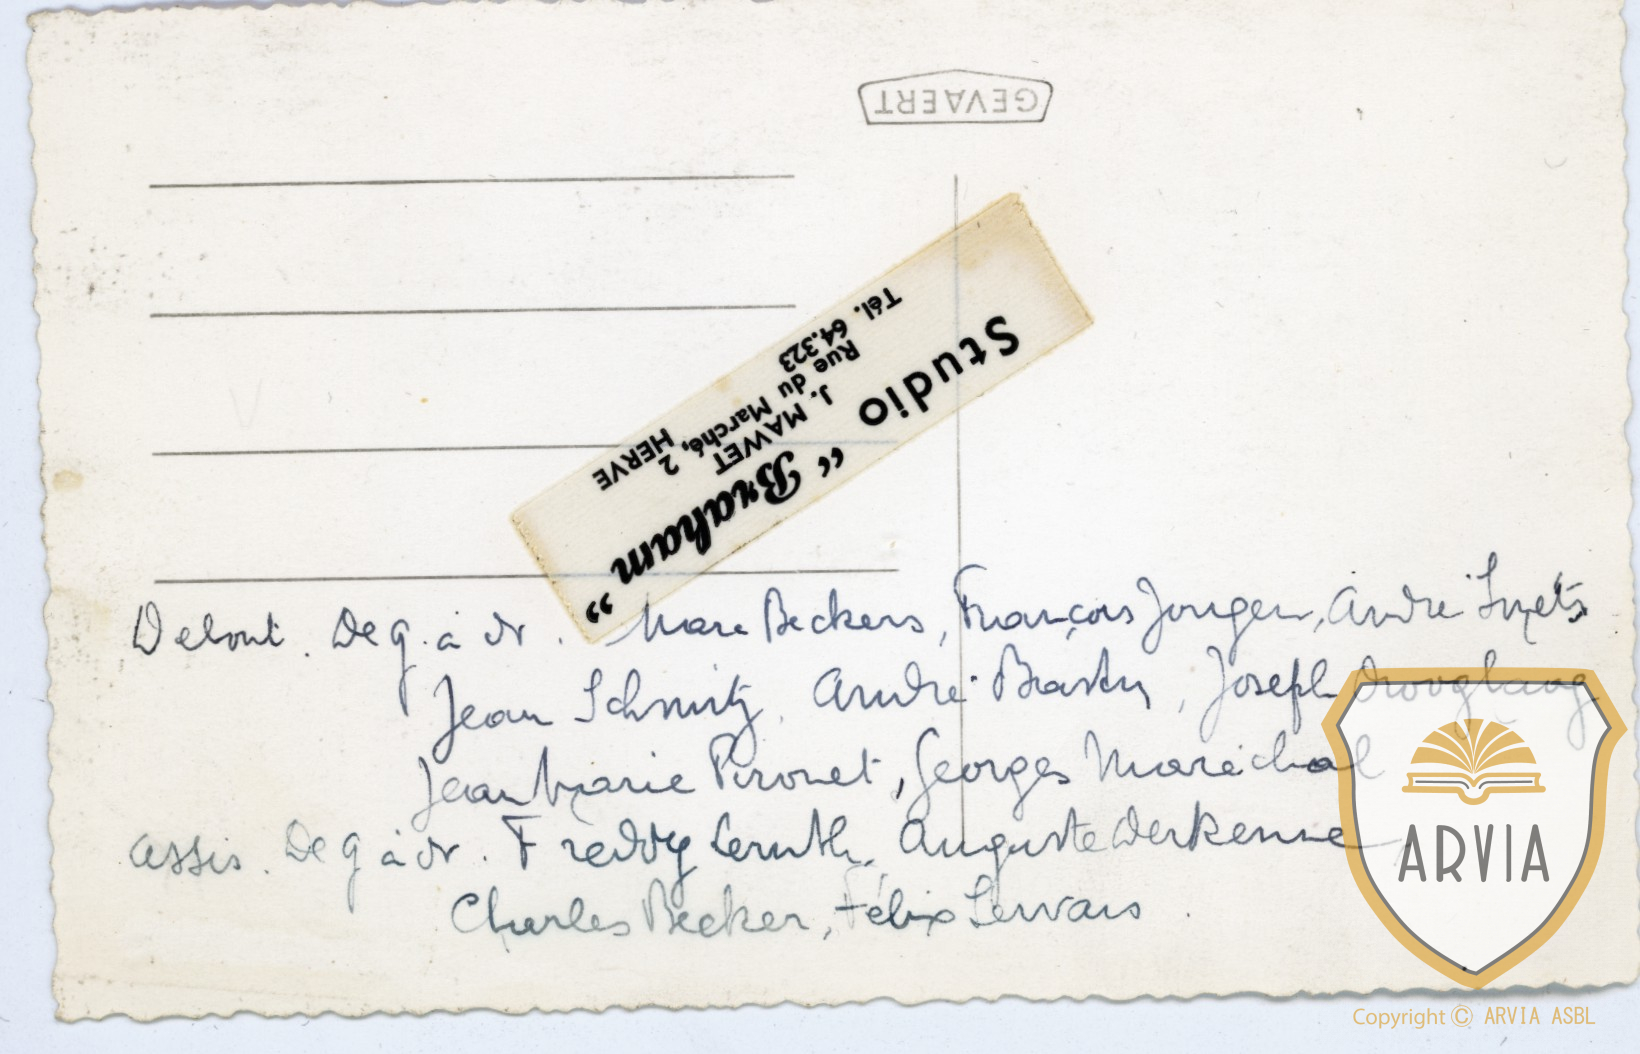 GEVAERT
Studio “ Braham ”
J. MAWET
Rue du Marché, 2 HERVE
Tél. 64.323
Debout. De g. à dr. Marc Beckers, François Jongen, André
Jean Schmitz, André Joseph
Jean Marie Pironet, Georges Maréchal
Assis. De g à dr. Freddy Auguste Derkenne,
Charles Becker, Félix Servais.
ARVIA
Copyright © ARVIA ASBL